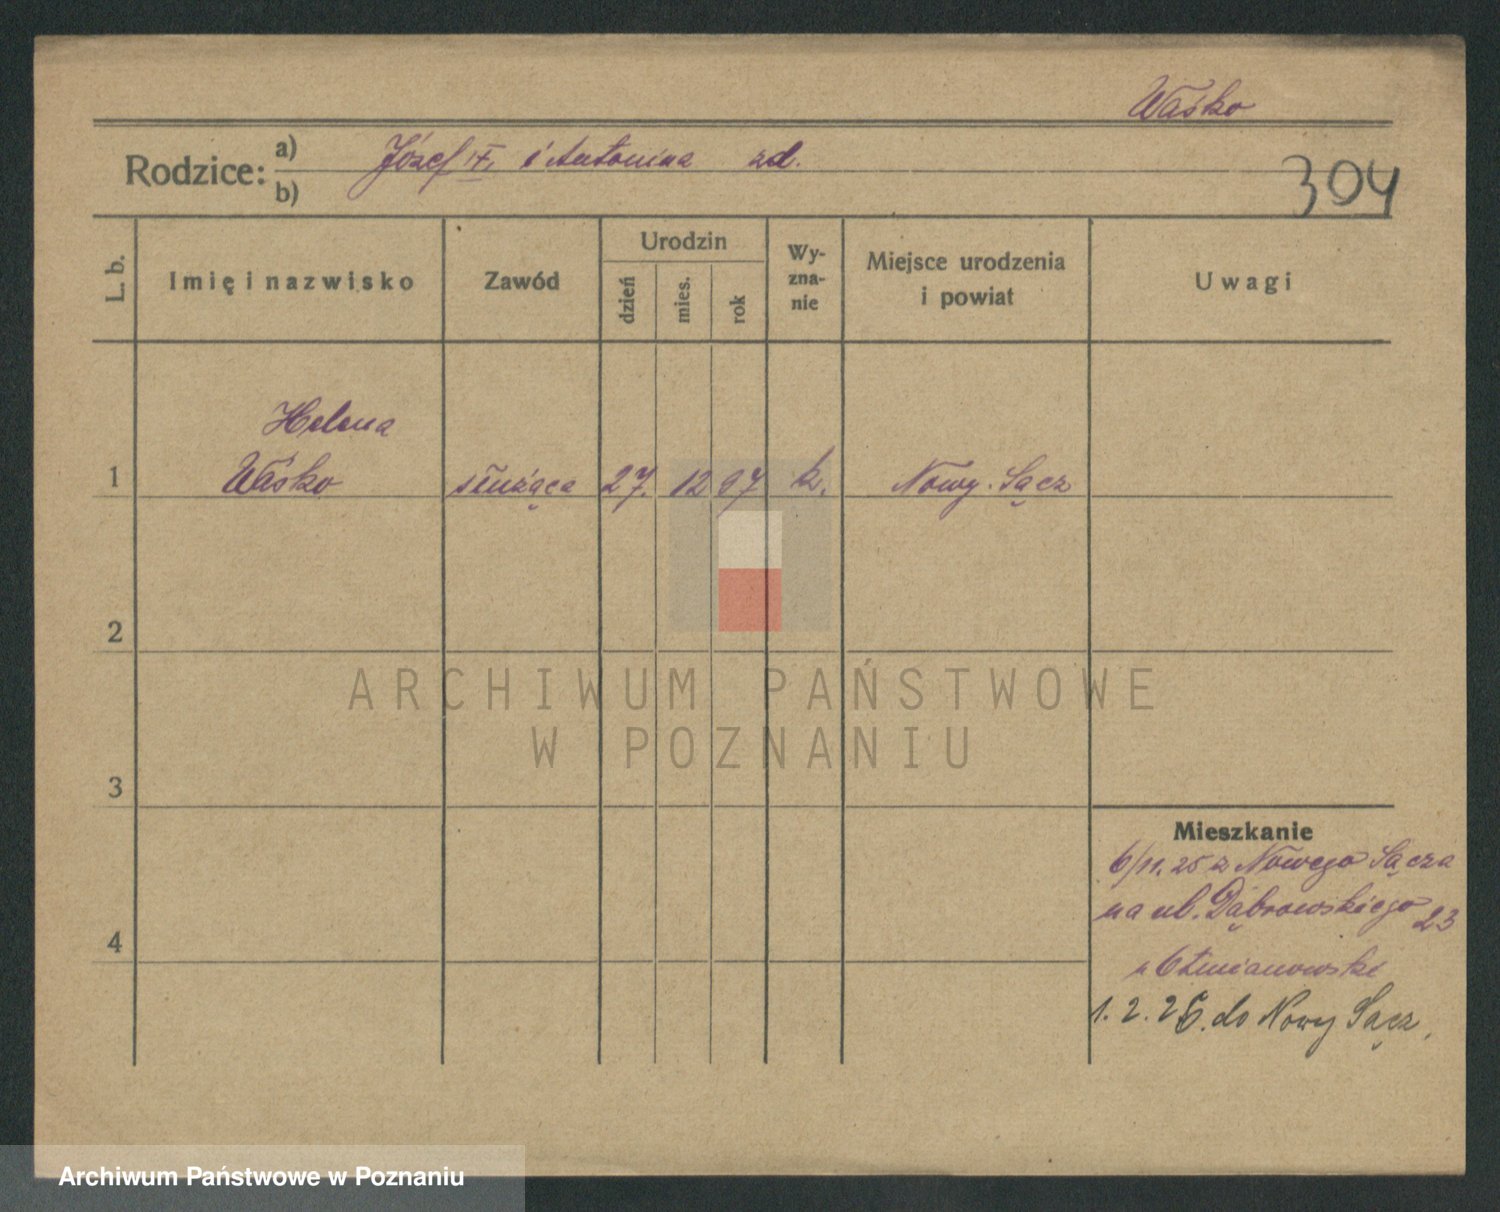 Waśko
Rodzice: a) Józef i Antonina zd.
b)
304
L. b. Imię i nazwisko Zawód Urodzin dzień mies. rok Wy-zna-nie Miejsce urodzenia i powiat Uwagi
Helena
1 Waśko służąca 27. 12 07 k. Nowy. Sącz
2
ARCHIWUM PAŃSTWOWE
W POZNANIU
3
Mieszkanie
6/11. 25 z Nowego Sącza
na ul. Dąbrowskiego 23
4
1. 2. 26. do Nowy Sącz,
Archiwum Państwowe w Poznaniu